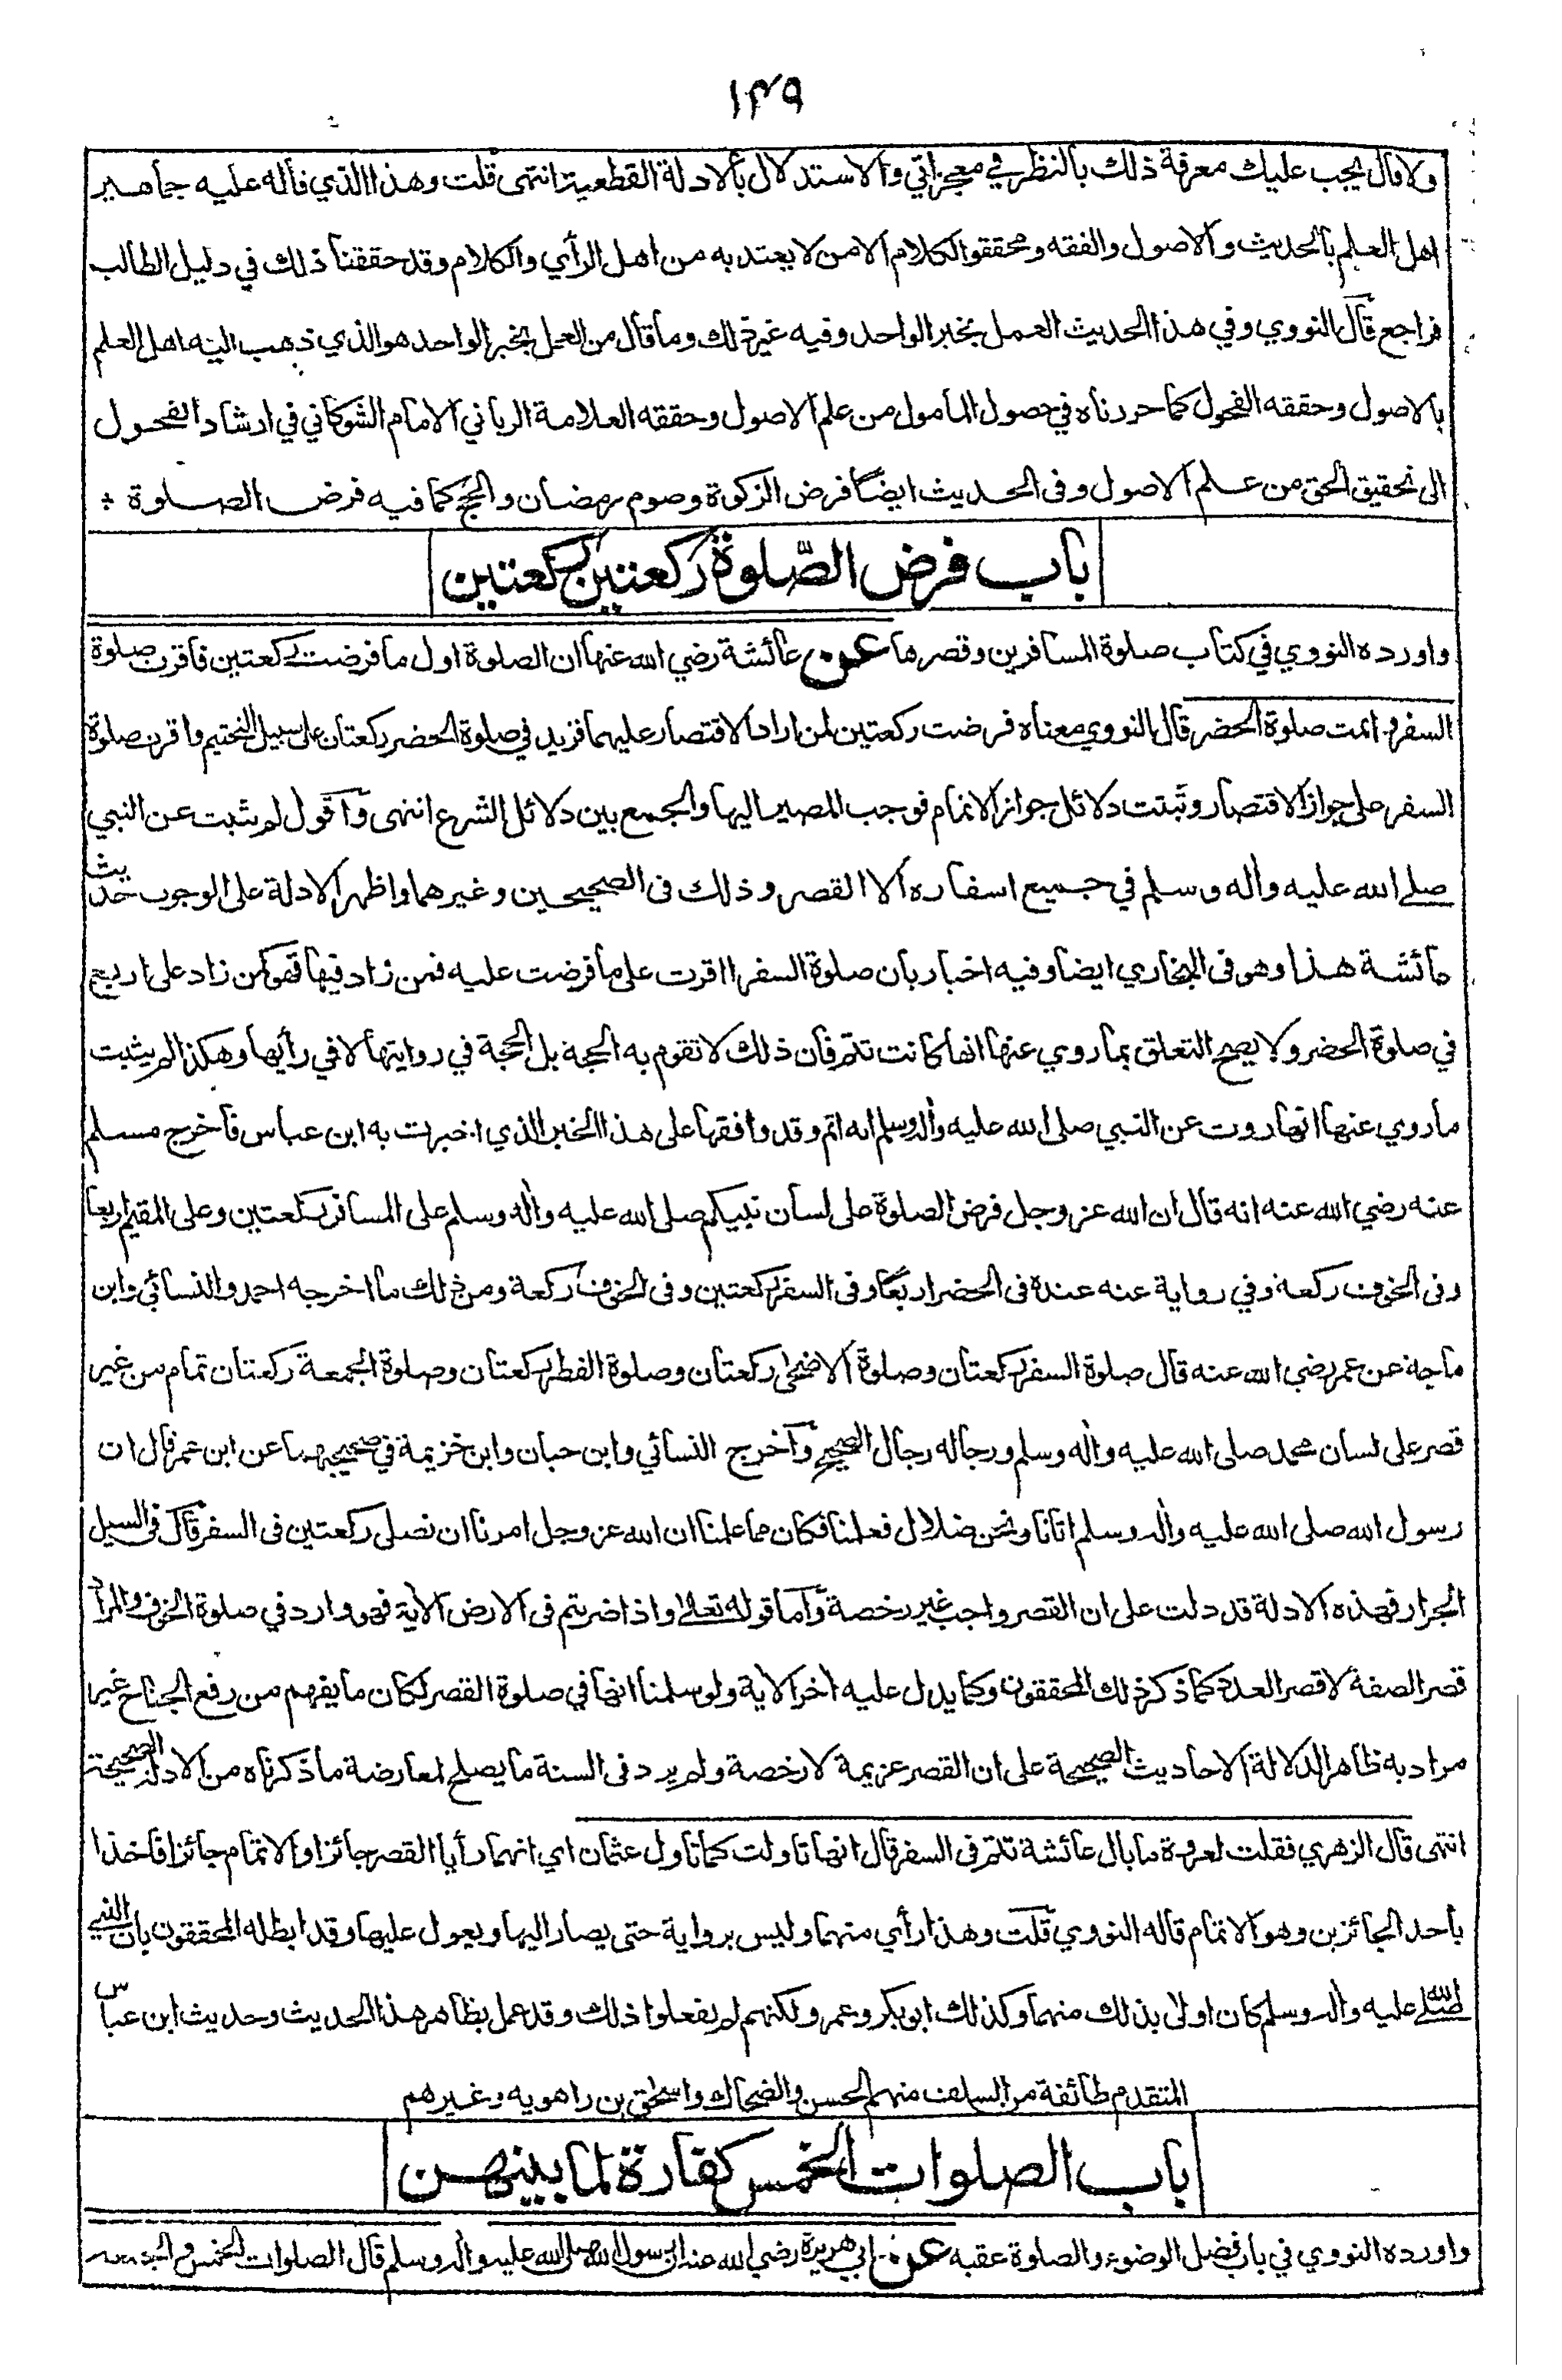 ١٣٩
ولا قال يجب عليك معرفة ذلك بالنظر في معجزاتي والاستدلال بالادلة القطعية انتهى قلت وهذا الذي قاله عليه جماهير
اهل العلم بالحديث والاصول والفقه ومحققوا الكلام الا من لا يعتد به من اهل الرأي والكلام وقد حققنا ذلك في دليل الطالب
فراجع قال النووي وفي هذا الحديث العمل بخبر الواحد وفيه غير ذلك وما قال من العمل بخبر الواحد هو الذي ذهب اليه اهل العلم
بالاصول وحققه الفحول كما حررناه في حصول المأمول من علم الاصول وحققه العلامة الرباني الامام الشوكاني في ارشاد الفحول
الى تحقيق الحق من علم الاصول وفى الحديث ايضًا فرض الزكوة وصوم رمضان والحج كما فيه فرض الصلوة ؛
باب فرض الصّلوة ركعتين ركعتين
واورده النووي في كتاب صلوة المسافرين وقصرها عن عائشة رضي الله عنها ان الصلوة اول ما فرضت ركعتين فاقرت صلوة
السفر واتمت صلوة الحضر قال النووي معناه فرضت ركعتين لمن اراد الاقتصار عليهما فزيد في صلوة الحضر ركعتان على سبيل التحتيم واقرت صلوة
السفر على جواز الاقتصار وثبتت دلائل جواز الاتمام فوجب المصير اليها والجمع بين دلائل الشرع انتهى وآقول لم يثبت عن النبي
صلے الله عليه واٰله وسلم في جميع اسفاره الا القصر وذلك فى الصحيحين وغيرهما واظهر الادلة على الوجوب حديث
عائشة هذا وهو فى البخاري ايضا وفيه اخبار بان صلوة السفر اقرت على ما فرضت عليه فمن زاد فيها فهو كمن زاد على اربع
في صلوة الحضر ولا يصح التعلق بما روي عنها انها كانت تتم فان ذلك لا تقوم به الحجة بل الحجة في روايتها لا في رأيها وهكذا لم يثبت
ما روي عنها انها روت عن النبي صلى الله عليه واٰله وسلم انه اتم وقد وافقها على هذا الخبر الذي اخبرت به ابن عباس فاخرج مسلم
عنه رضي الله عنه انه قال ان الله عز وجل فرض الصلوة على لسان نبيكم صلى الله عليه واٰله وسلم على المسافر ركعتين وعلى المقيم اربعا
وفى الخوف ركعة وفي رواية عنه عنده فى الحضر اربعًا وفى السفر ركعتين وفى الخوف ركعة ومن ذلك ما اخرجه احمد والنسائي وابن
ماجة عن عمر رضي الله عنه قال صلوة السفر ركعتان وصلوة الاضحى ركعتان وصلوة الفطر ركعتان وصلوة الجمعة ركعتان تمام من غير
قصر على لسان محمد صلى الله عليه واٰله وسلم ورجاله رجال الصحيح وآخرج النسائي وابن حبان وابن خزيمة في صحيحيهما عن ابن عمر قال ان
رسول الله صلى الله عليه واٰله وسلم اتانا ونحن ضلال فعلمنا فكان مما علمنا ان الله عز وجل امرنا ان نصلى ركعتين فى السفر قال فى السيل
الجرار فهذه الادلة قد دلت على ان القصر واجب غير رخصة وآما قوله تعالى واذا ضربتم فى الارض الاٰية فهو وارد في صلوة الخوف والمراد
قصر الصفة لا قصر العدد كما ذكر ذلك المحققون وكما يدل عليه اٰخر الاٰية ولو سلمنا انها في صلوة القصر لكان ما يفهم من رفع الجناح غير
مراد به ظاهر لدلالة الاحاديث الصحيحة على ان القصر عزيمة لا رخصة ولم يرد فى السنة ما يصلح لمعارضة ما ذكرناه من الادلة الصحيحة
انتهى قال الزهري فقلت لعروة ما بال عائشة تتم فى السفر قال انها تاولت كما تاول عثمان اي انهما رأيا القصر جائزا والاتمام جائزا فاخذا
باحد الجائزين وهو الاتمام قاله النووي قلت وهذا رأي منهما وليس برواية حتى يصار اليها ويعول عليها وقد ابطله المحققون بان النبي
صلے الله عليه واٰله وسلم كان اولى بذلك منهما وكذلك ابو بكر وعمر ولكنهم لم يفعلوا ذلك وقد عمل بظاهر هذا الحديث وحديث ابن عباس
المتقدم طائفة من السلف منهم الحسن والضحاك واسحٰق بن راهويه وغيرهم
باب الصلوات الخمس كفارة لما بينهن
واورده النووي في باب فضل الوضوء والصلوة عقبه عن ابي هريرة رضي الله عنه ان رسول الله صلى الله عليه واٰله وسلم قال الصلوات الخمس والجمعة